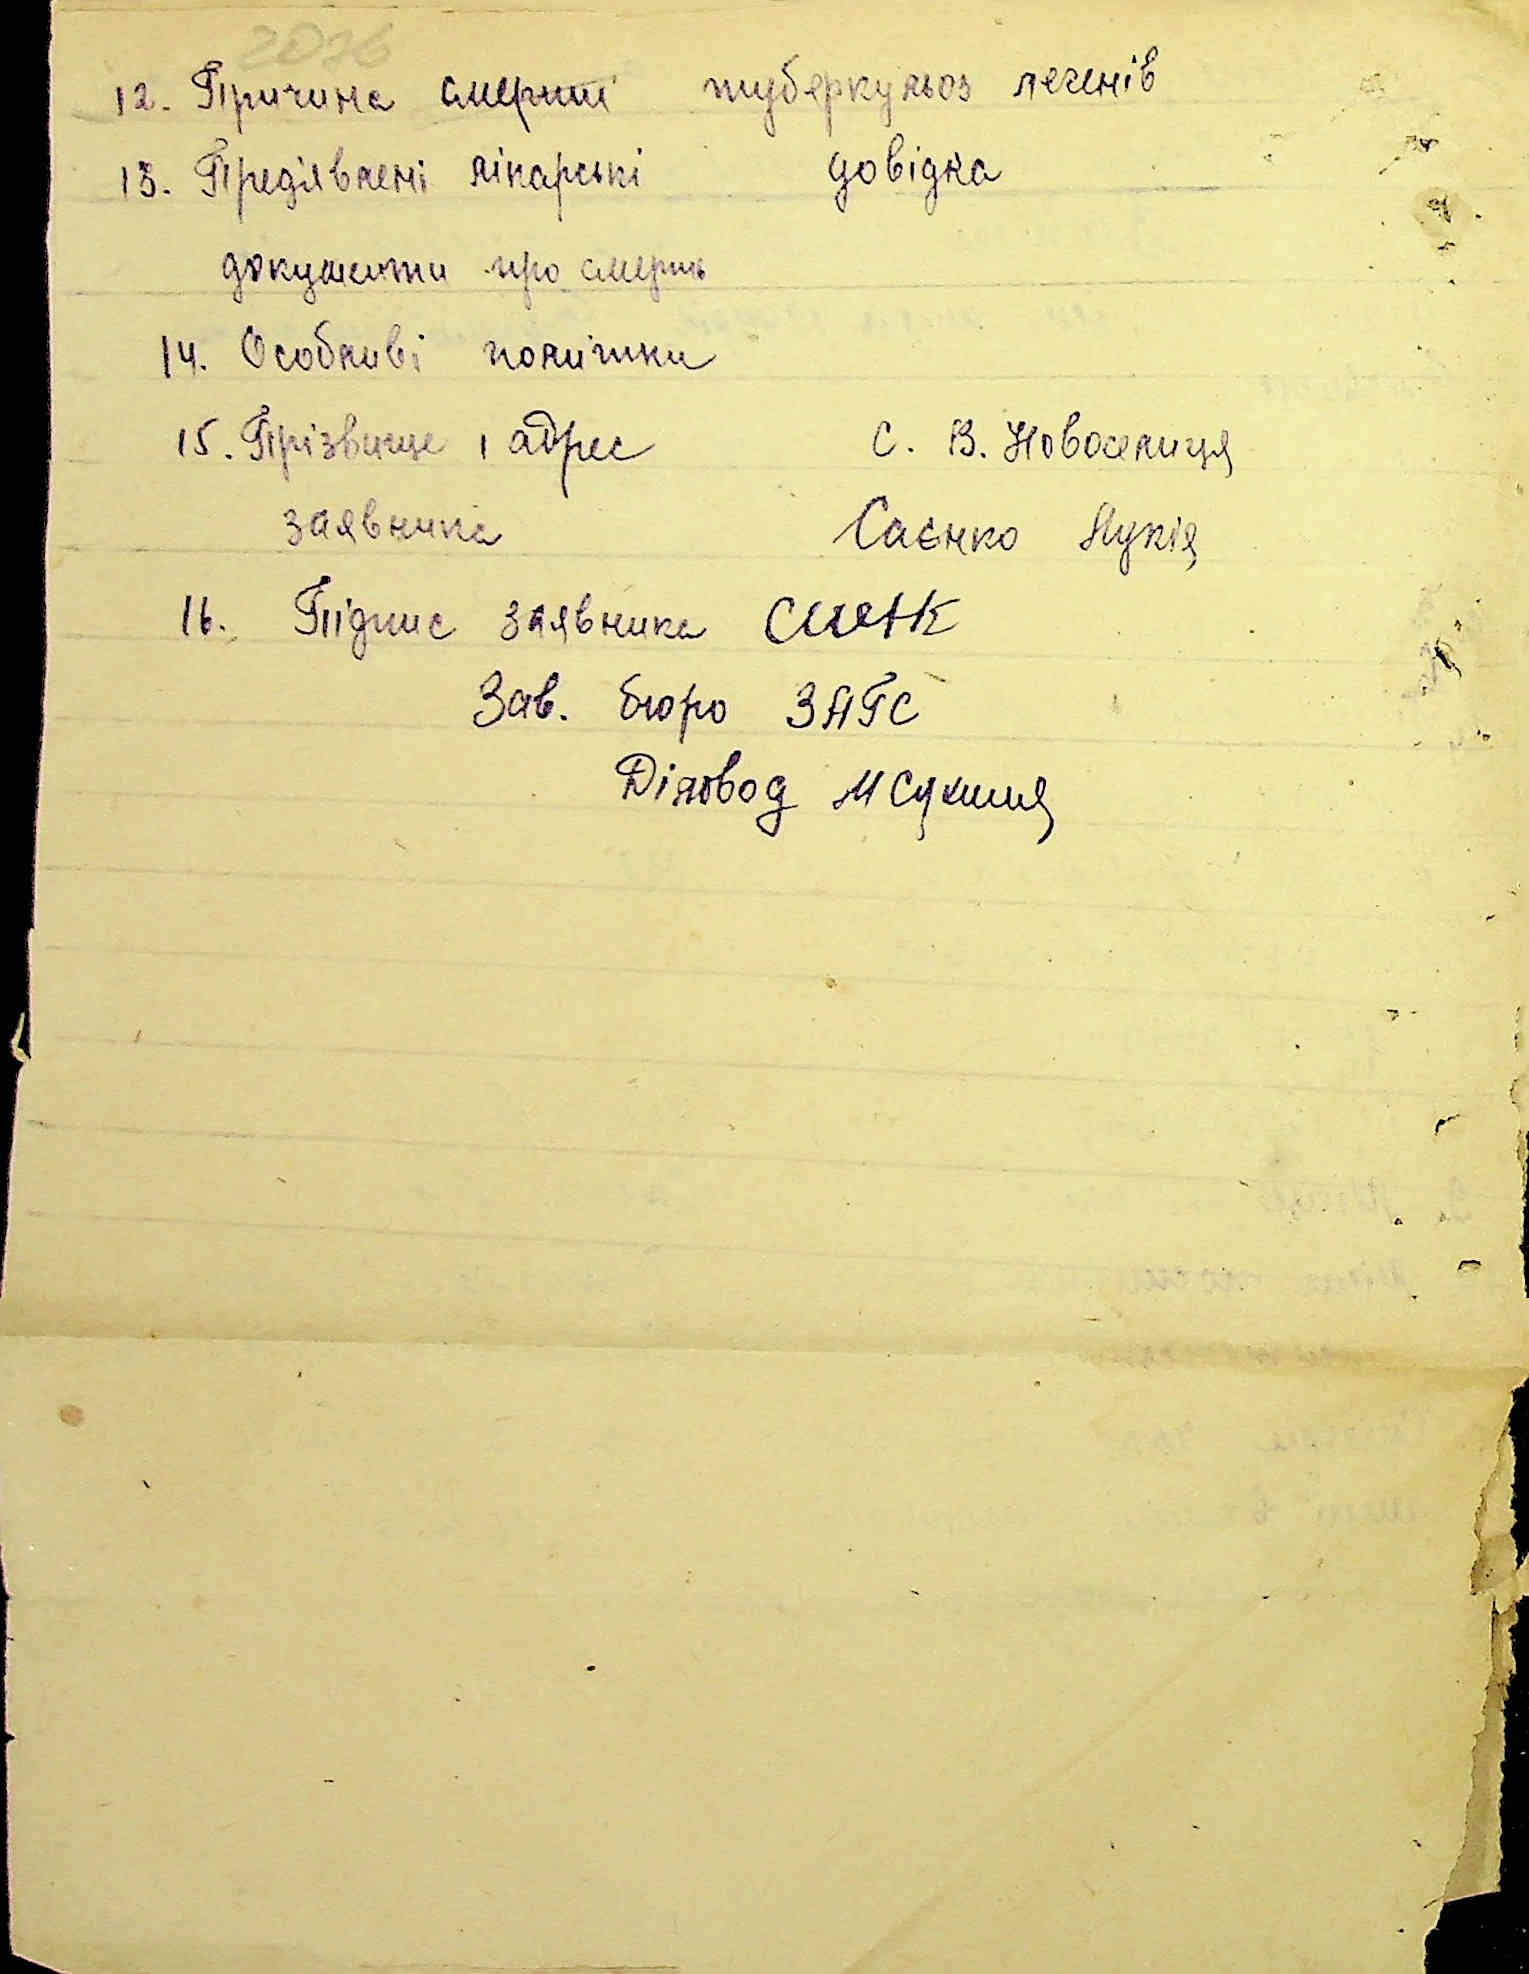 2076
12. Причина смерті туберкульоз легенів
13. Предявлені лікарські довідка
документи про смерть
14. Особливі помітки
15. Прізвище і адрес с. В. Новоселиця
заявника Саєнко Лукія
16. Підпис заявника
Зав. бюро ЗАГС
Діловод